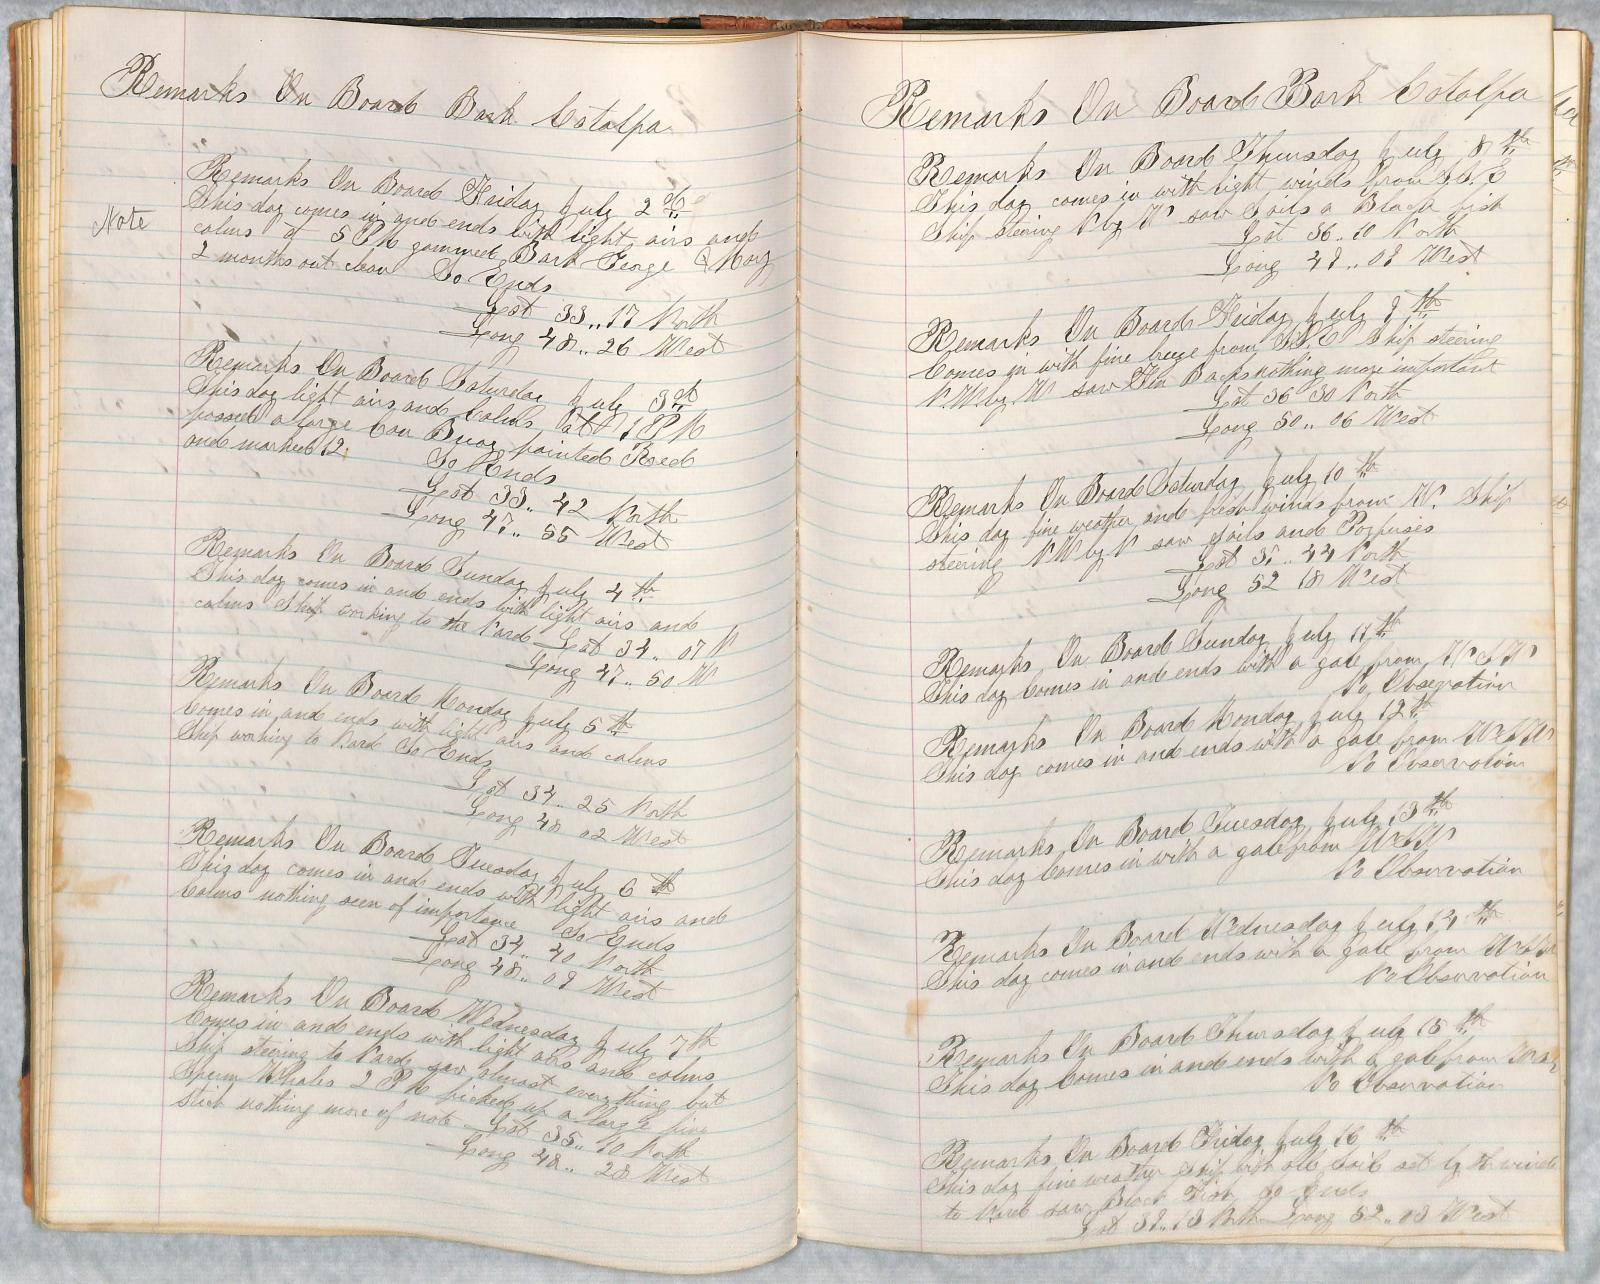 Remarks On Board Bark Catalpa
Remarks On Board Friday July 2nd
Note
This day comes in and ends with light airs and
calms at 5 PM gammed Bark George & Mary
2 months out clean So Ends
Lat 33,,17 North
Long 48,,26 West
Remarks On Board Saturday July 3rd
This day light airs and Calms, at 1 PM
passed a large Can Buoy painted Reed
and marked 12. So Ends
Lat 33,,42 North
Long 47,,55 West
Remarks On Board Sunday July 4th
This day comes in and ends with light airs and
calms Ship working to the Nard Lat 34,,07 N
Long 47,,50 W
Remarks On Board Monday July 5th
Comes in and ends with light airs and calms
Ship working to Nard So Ends
Lat 34,,25 North
Long 48 02 West
Remarks On Board Tuesday July 6th
This day comes in and ends with light airs and
Calms nothing seen of importance So Ends
Lat 34 40 North
Long 48,,09 West
Remarks On Board Wednesday July 7th
Comes in and ends with light airs and calms,
Ship steering to Nard, saw almost everything but
Sperm Whales 2 PM picked up a large pine
stick nothing more of note Lat 35,,10 North
Long 48,,28 West
Remarks On Board Bark Catalpa
Remarks On Board Thursday July 8th
This day comes in with light winds from
Ship steering N by W saw Sails a Black fish
Lat 36,,10 North
Long 49,,09 West
Remarks On Board Friday July 9th
Comes in with fine breeze from Ship steering
N.W. by W saw Fin Backs nothing more important
Lat 36 30 North
Long 50,,06 West
Remarks On Board Saturday July 10th
This day fine weather and fresh winds from W. Ship
steering NW by N saw Sails and Porpuses
Lat 37,,44 North
Long 52 18 West
Remarks On Board Sunday July 11th
This day Comes in and ends with a gale from WSW
No, Observation
Remarks On Board Monday July 12th
This day comes in and ends with a gale from WSW
No Observation
Remarks On Board Tuesday July 13th
This day Comes in with a gale from WSW
No Observation
Remarks On Board Wednesday July 14th
This day comes in and ends with a gale from
No Observation
Remarks On Board Thursday July 15th
This day Comes in and ends with a gale from
No Observation
Remarks On Board Friday July 16th
This day fine weather Ship with all Sail set by the wind
to Nard saw Black Fish So Ends
Lat 39,,13 North Long 52,,03 West